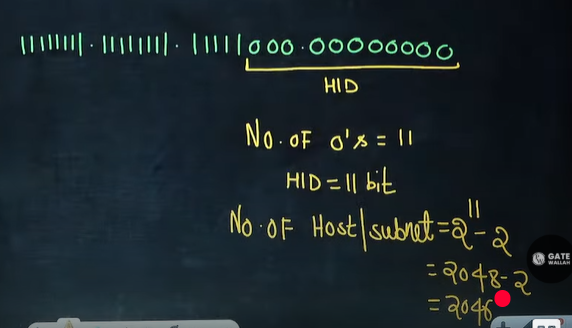 11111111.11111111.11111000.00000000
HID
No. OF 0's = 11
HID = 11 bit
No. OF Host/subnet = 2¹¹ - 2
= 2048 - 2
= 2046
GATE
WALLAH